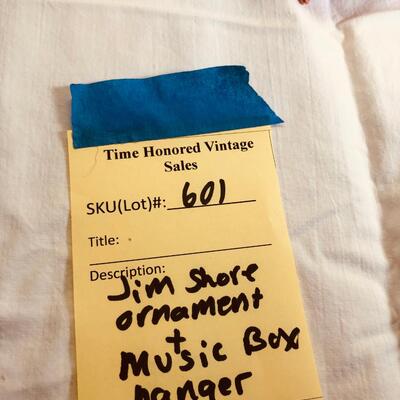 Time Honored Vintage
Sales
SKU(Lot)#: 601
Title:
Description:
Jim Shore
ornament
+
Music Box
hanger